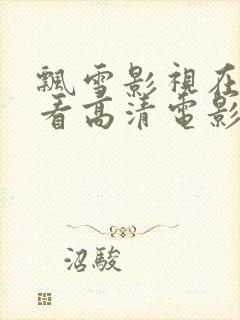 飄雪影視在
看高清電影
沼駿